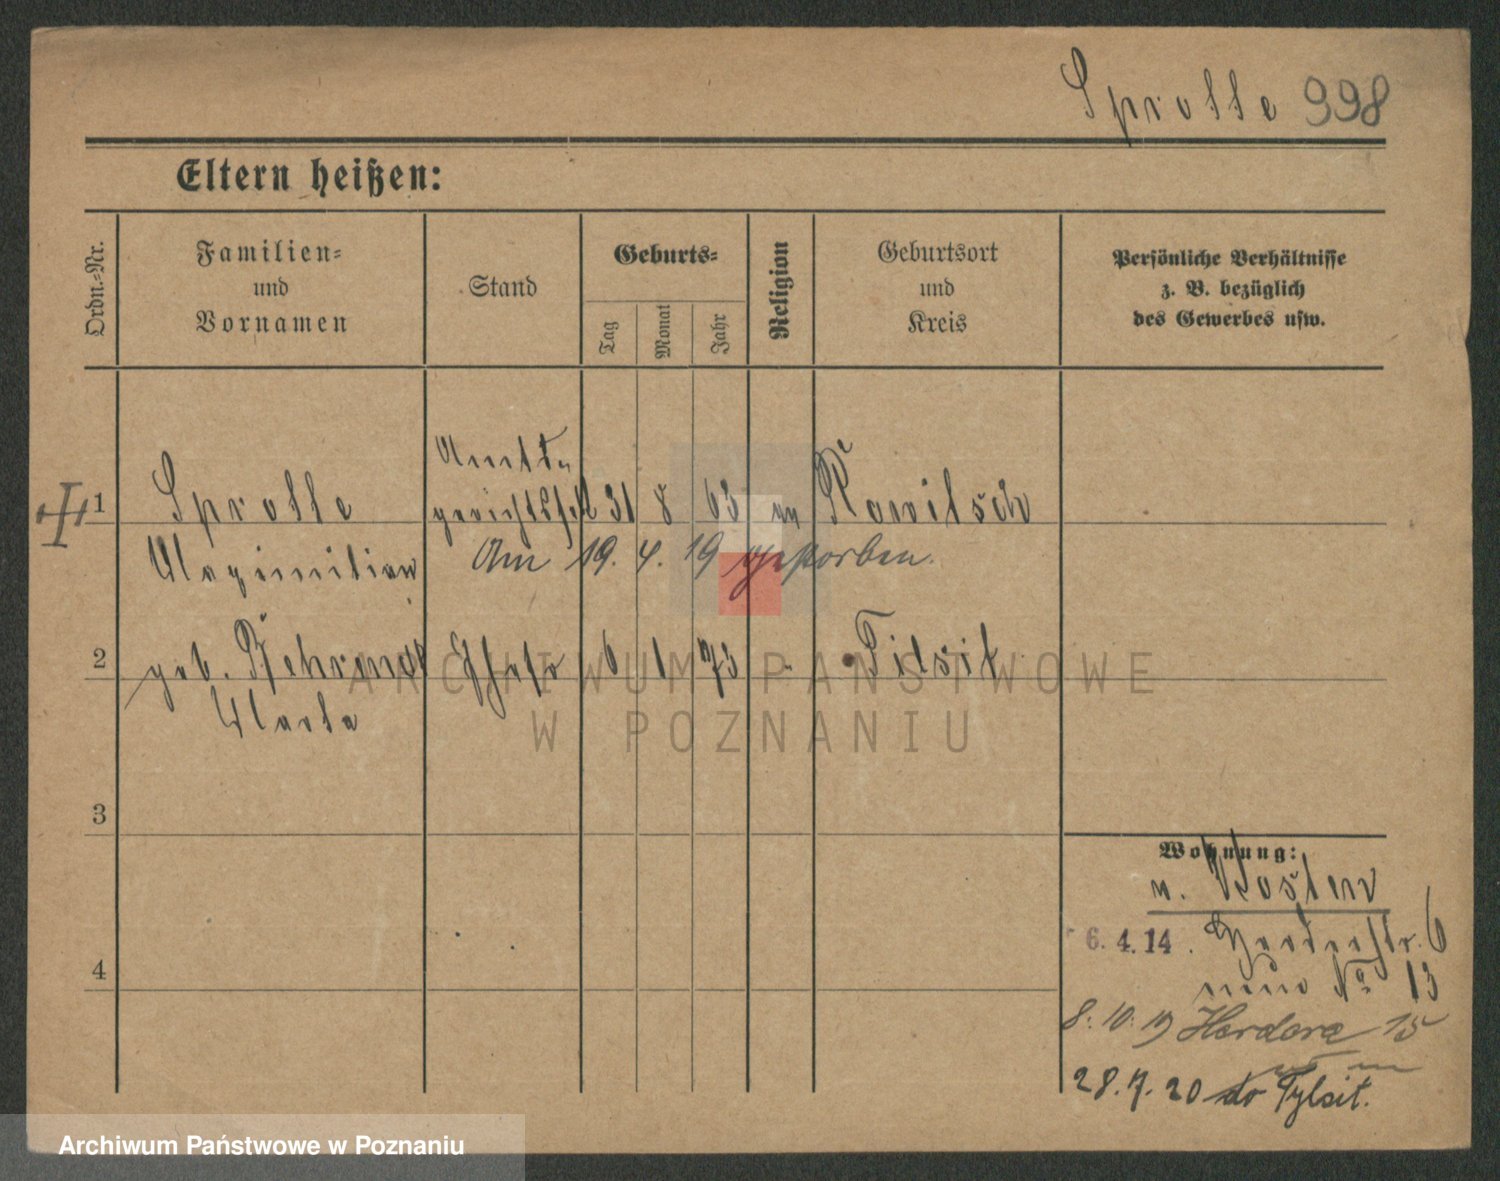 Sprotte 998
Eltern heißen:
Ordn.-Nr.
Familien-
und
Vornamen
Stand
Geburts-
Tag
Monat
Jahr
Religion
Geburtsort
und
Kreis
Persönliche Verhältnisse
z. B. bezüglich
des Gewerbes usw.
Amts-
1 Sprotte 31 8 63 Rawitsch
Maximilian Am 19. 4. 19 gestorben.
2 geb. Behrendt Ehefr 6 1 73 Tilsit
Marta
3
4
Wohnung:
n. Posten
6. 4. 14 . Herderstr. 6
neue No 13
8. 10. 19 Herdera 15
28. 7. 20 do Tylsit.
ARCHIWUM PAŃSTWOWE
W POZNANIU
Archiwum Państwowe w Poznaniu